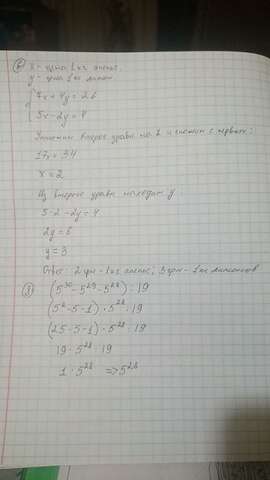 ② x - цена 1 кг апельс.
y - цена 1 кг лимон.
7x + 4y = 26
5x - 2y = 4
Умножим второе уравн на 2 и сложим с первым:
17x = 34
x = 2
Из второго уравн находим y
5·2 - 2y = 4
2y = 6
y = 3
Ответ: 2 грн - 1 кг апельс; 3 грн - 1 кг лимонов
③ (5³⁰ - 5²⁹ - 5²⁸) : 19
(5² - 5 - 1) · 5²⁸ : 19
(25 - 5 - 1) · 5²⁸ : 19
19 · 5²⁸ : 19
1 · 5²⁸ => 5²⁸